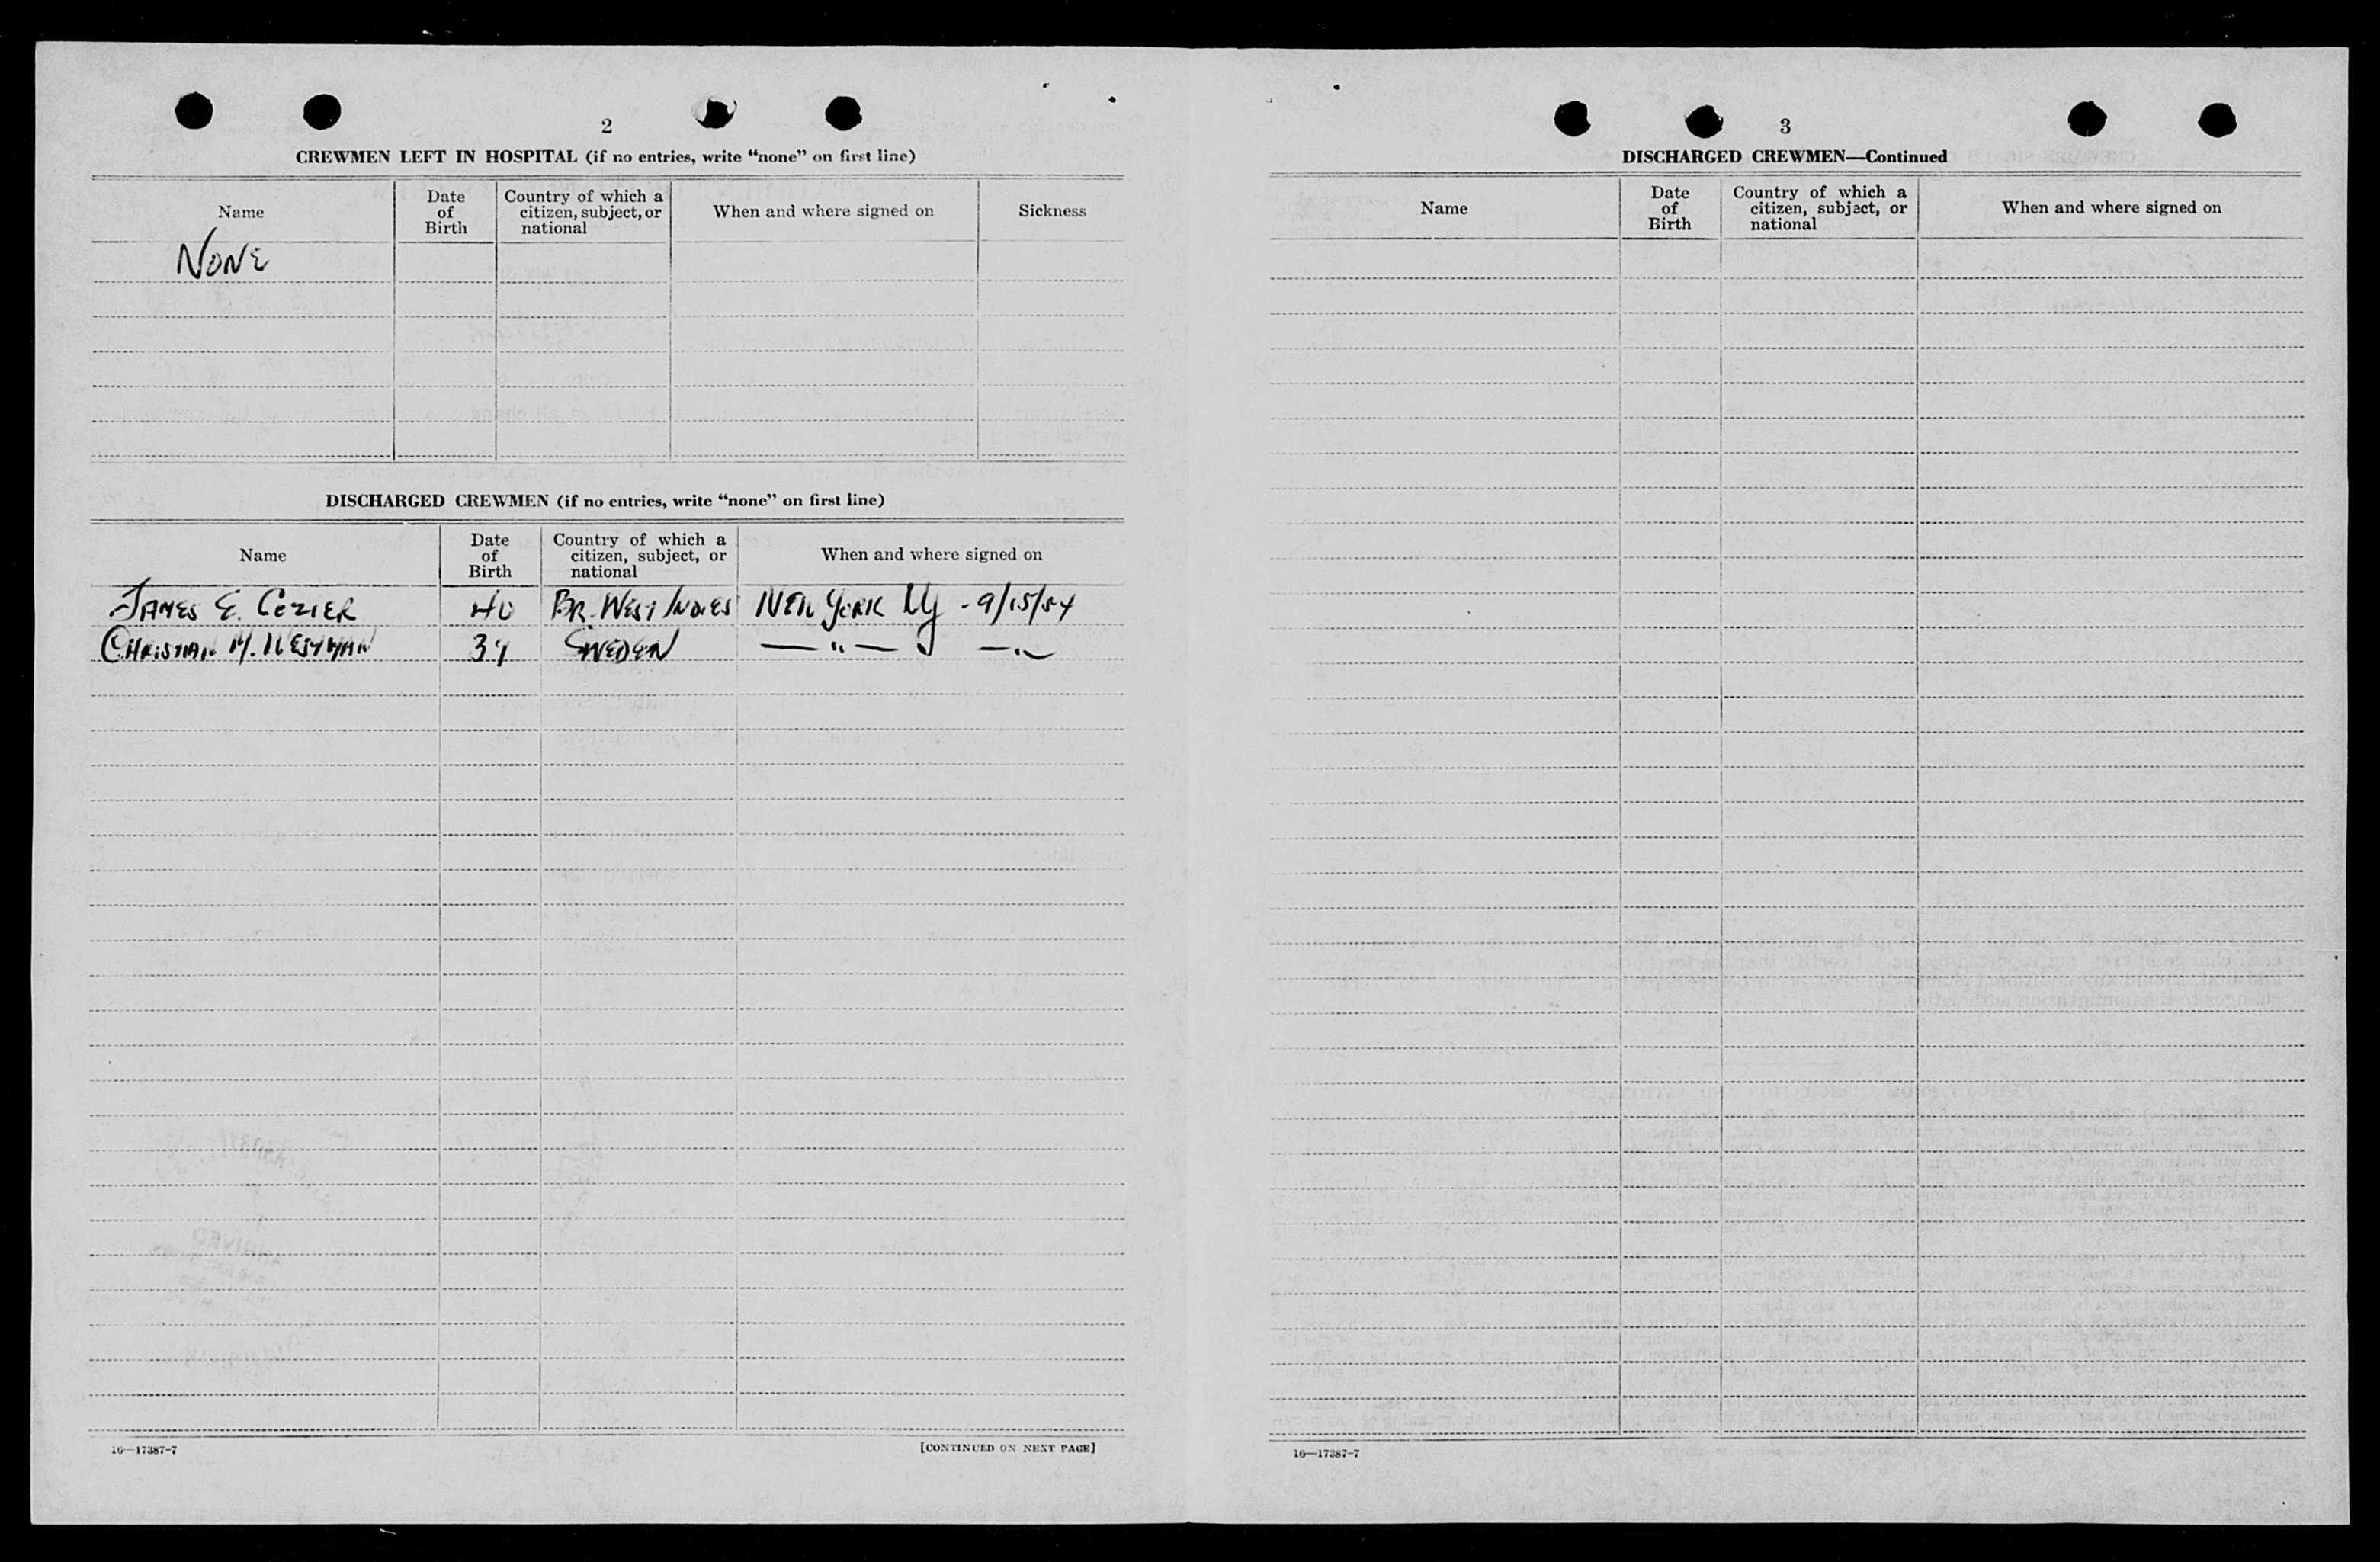 2
CREWMEN LEFT IN HOSPITAL (if no entries, write "none" on first line)
Name
Date of Birth
Country of which a citizen, subject, or national
When and where signed on
Sickness
NONE
DISCHARGED CREWMEN (if no entries, write "none" on first line)
Name
Date of Birth
Country of which a citizen, subject, or national
When and where signed on
JAMES E. COZIER 40 BR. WEST INDIES NEW YORK NY - 9/15/54
CHRISTIAN M. SWEDEN — " — — " —
16—17387-7
[CONTINUED ON NEXT PAGE]
3
DISCHARGED CREWMEN—Continued
Name
Date of Birth
Country of which a citizen, subject, or national
When and where signed on
16—17387-7